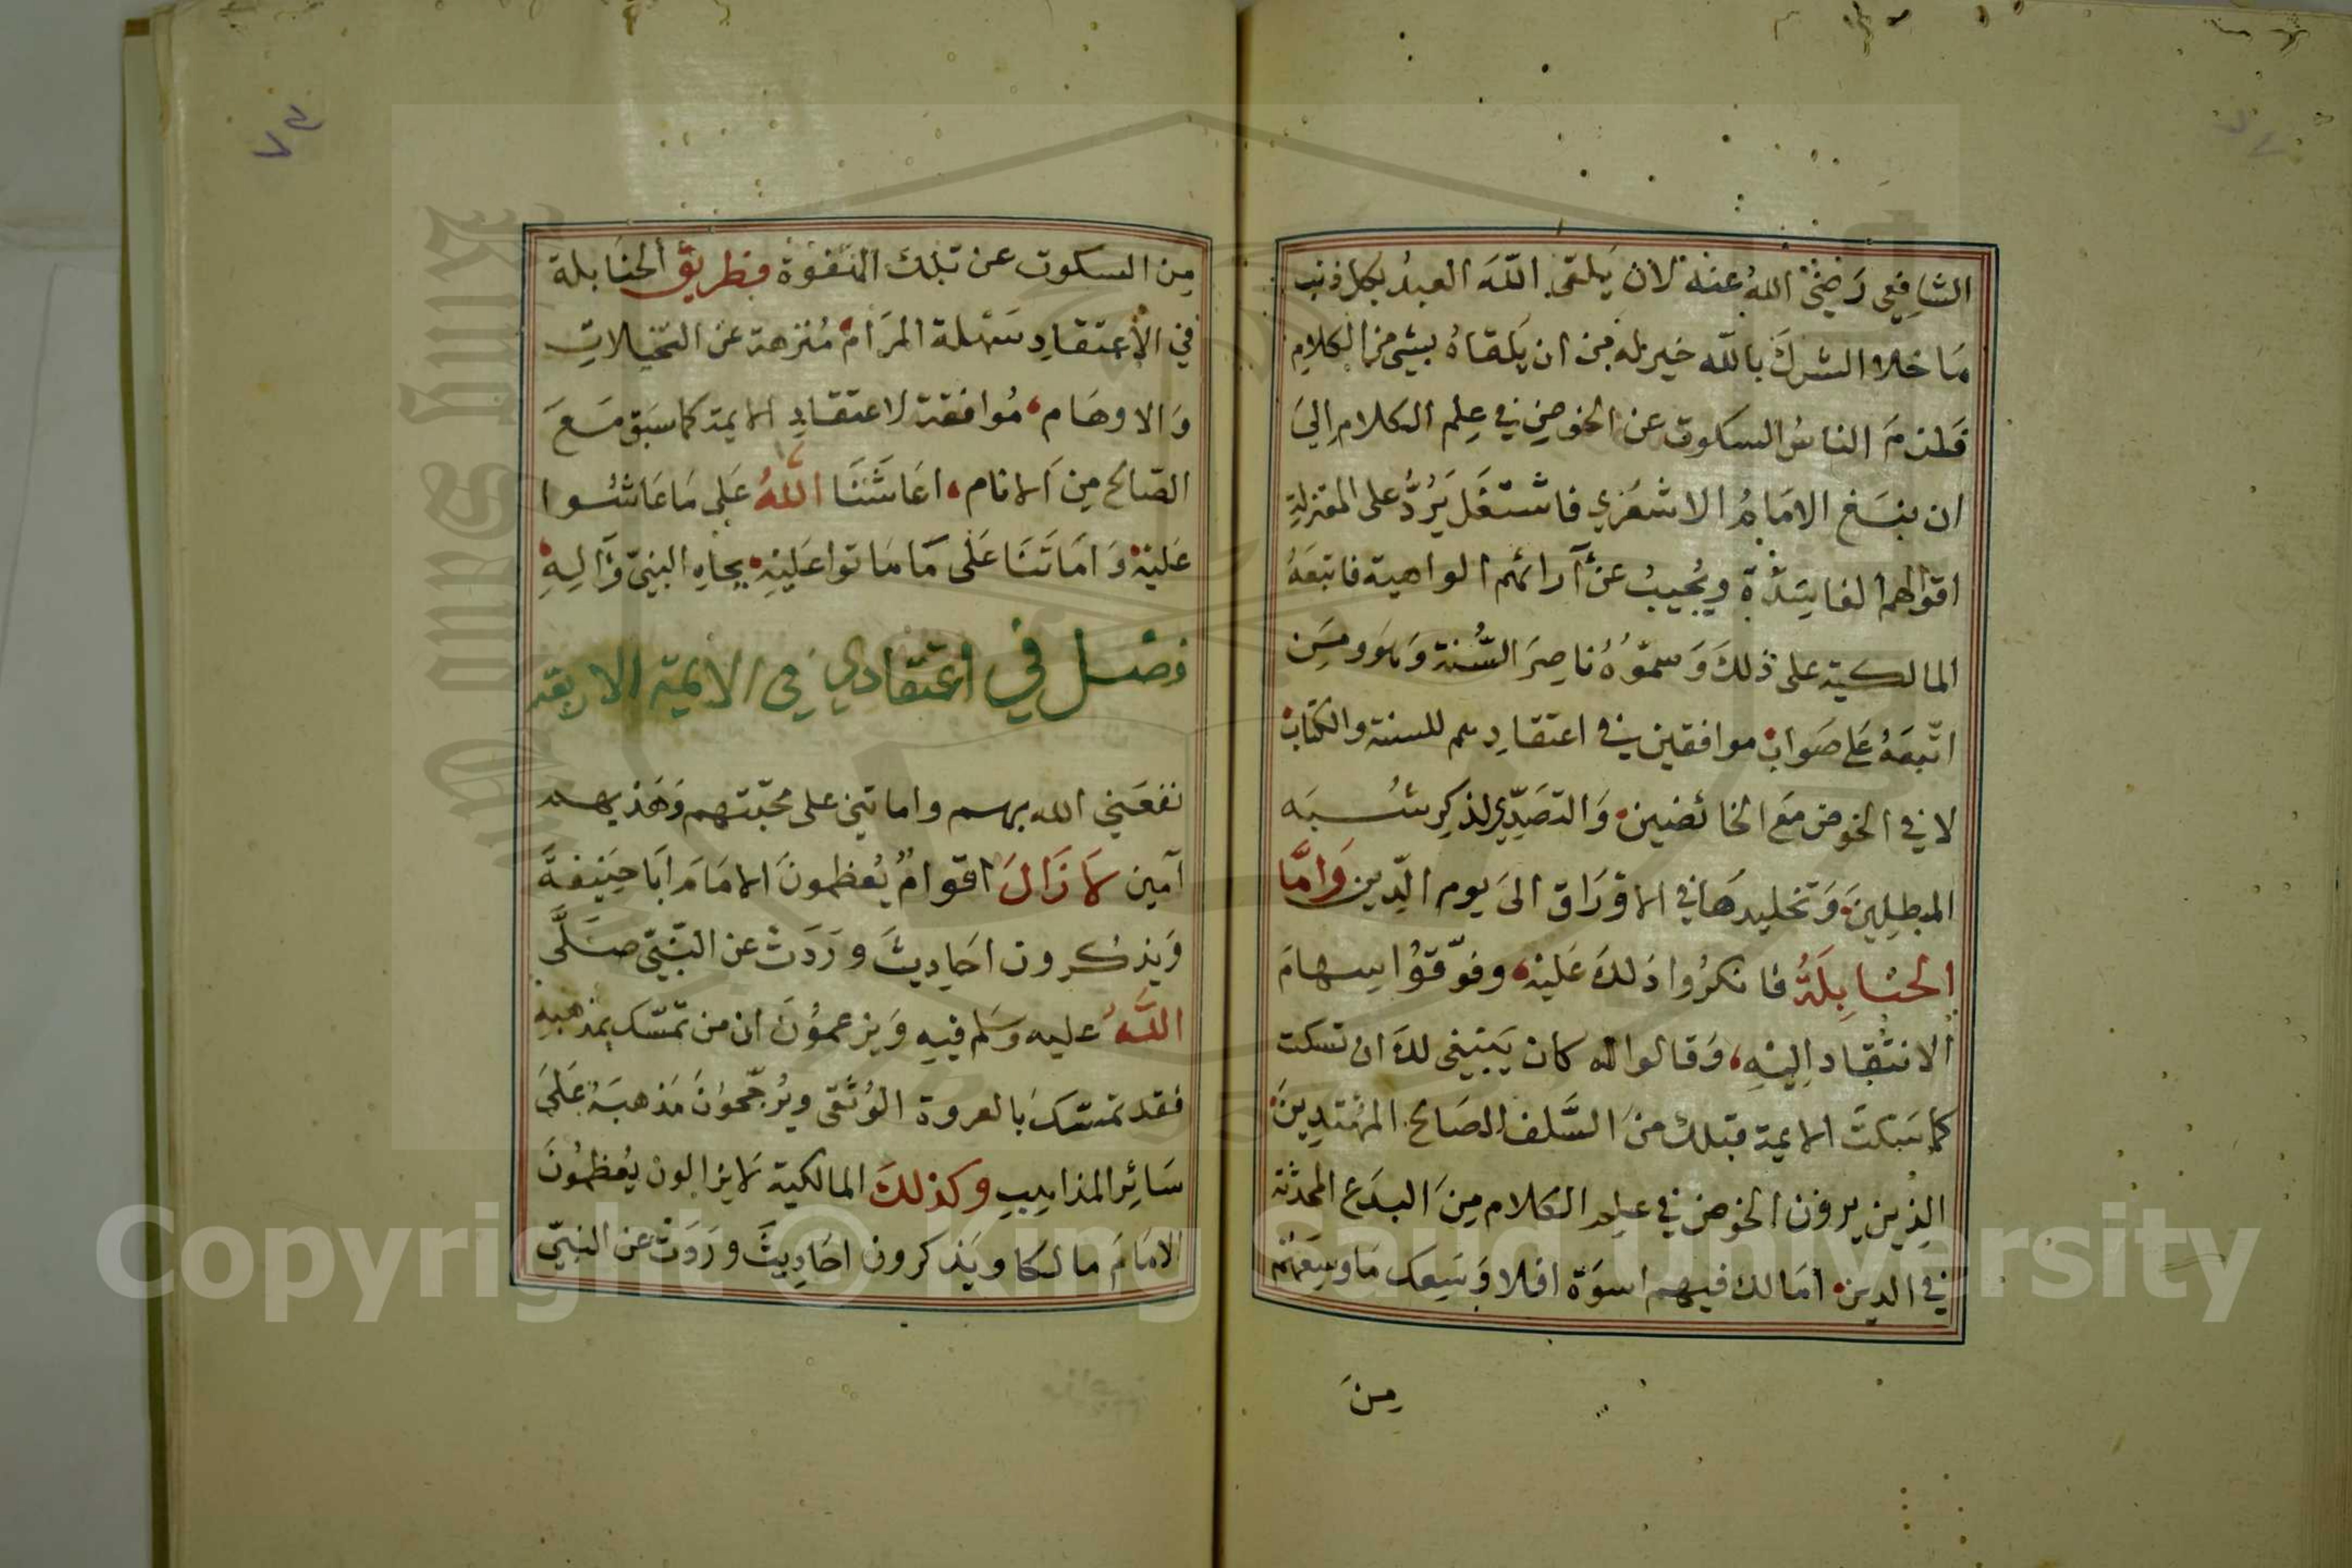 الشافِعِي رَضِيَ اللهُ عنهُ لان يَلقى اللّهَ العبدُ بكل ذنب
مَا خلا الشركَ بالله خير له مِن ان يَلقاهُ بشئ من الكلامِ
فَلزمَ الناسُ السكوت عن الخوضِ في عِلم الكلام اِليَ
ان نبَغ الامَامُ الاشعَري فاشتغَل يَرُدُّ على المعتزلةِ
اقوالهم الفاسِدَةَ ويُجيبُ عَنْ آرائهم الواهية فاتبعَهُ
المالكية على ذلكَ وَسموّهُ ناصِرَ السُّنة وَهوَ ومَن
اتّبعَهُ عَلى صَواب موافقين في اعتقادِهم للسنة والكتاب
لا في الخوض مَع الخائضين وَالتصَدِّي لذكر شُبَه
المبطِلِينَ وَتخليدهَا في الاوْرَاق الىَ يوم الدّين وَامَّا
الحنَابِلَةُ فانكرُوا ذلكَ عَليْه وفوّقوُا سِهامَ
الانتقاد اِليْهِ وَقالوا له كان يَنبَغِي لكَ ان تسكت
كما سَكتَ الايمة قبلك منَ السَّلف الصَالح المهْتدِينَ
الذِين يرون الخوض في علم الكلام مِنَ البدَع المحدثة
في الدين امَا لك فيهم اسوَة افلا وَسِعك مَا وسِعَهُمْ
مِنَ
مِن السكوت عن تلك الهَفوَة فطريق الحنَابلة
في الاِعتقادِ سَهلة المرَام مُنزهة عَن التخيلاتِ
وَالاوهَام مُوافقة لاعتقادِ الايمة كما سَبق مَعَ
الصّالح مِن الانام اعَاشَنَا اللهُ عَلى مَا عَاشُوا
عَليْهْ وَامَاتَنَا عَلَى مَا مَاتوا عَليْهِ بجاهِ النبيّ وَآلِهِ
فصل في اعتقادي في الايمة الاربعة
نفعَني الله بهم واماتني على محبّتهم وَهَذيهم
آمين لَا زَالَ اقوامٌ يُعظمونَ الامَامَ ابَا حَنِيفةَ
وَيذكرون احَادِيثَ ورَدَتْ عن النّبيّ صَلَّى
اللهُ عليه وسَلم فيهِ وَيزعموُنَ ان من تمسّك بمذهبهِ
فقد تمسّكَ بالعروة الوُثقى ويُرَجّحوُنَ مَذهبَهُ عَلىَ
سَائِر المذاهِب وكذلكَ المالكية لَا يزالون يُعَظمُونَ
الامَامَ مالكا ويَذكرون احَادِيثَ ورَدَتْ عن النبيّ
Copyright © King Saud University